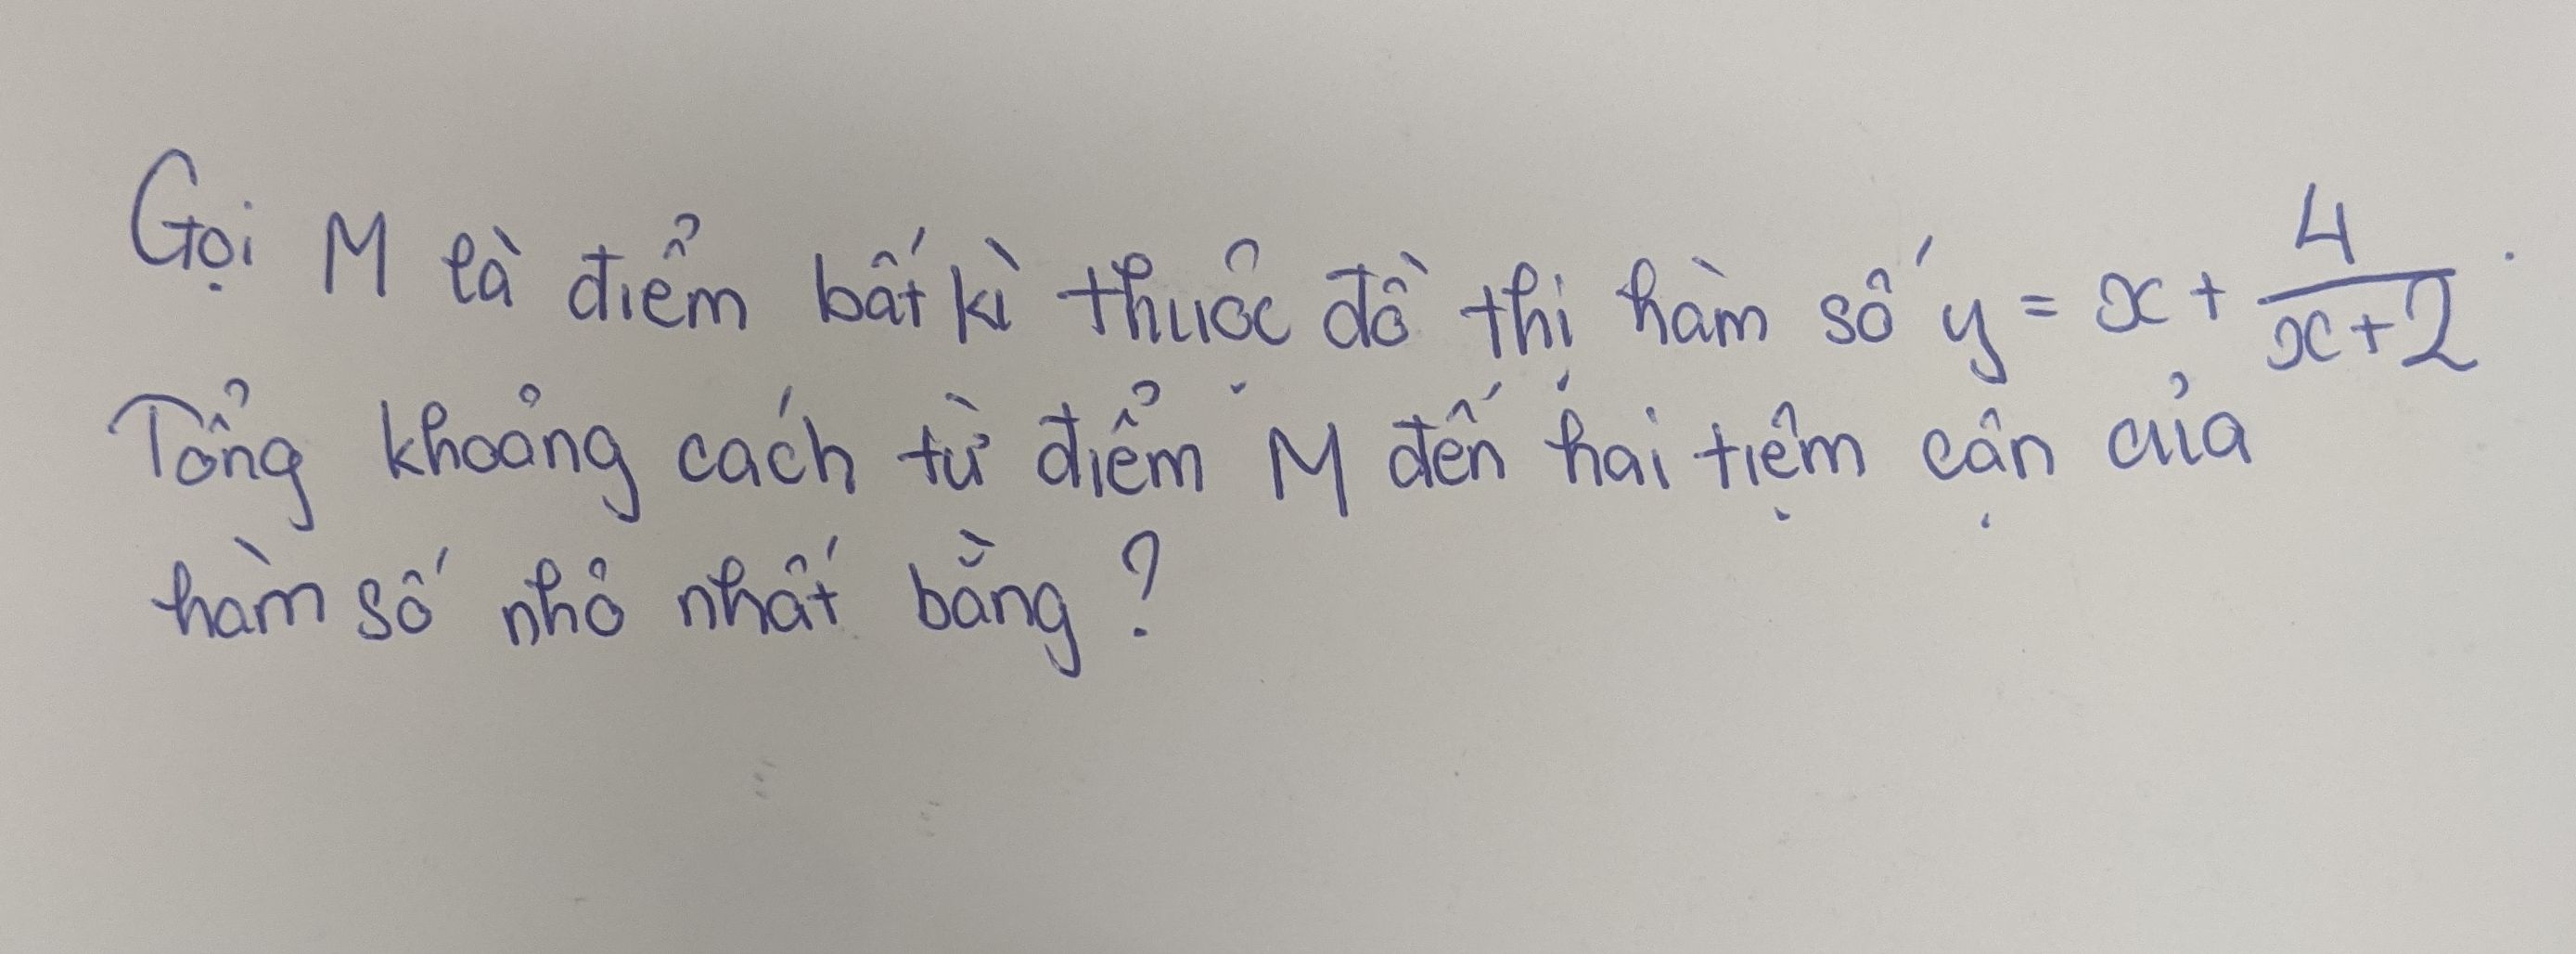 Gọi M là điểm bất kì thuộc đồ thị hàm số y = x + \frac{4}{x+2}.
Tổng khoảng cách từ điểm M đến hai tiệm cận của
hàm số nhỏ nhất bằng?